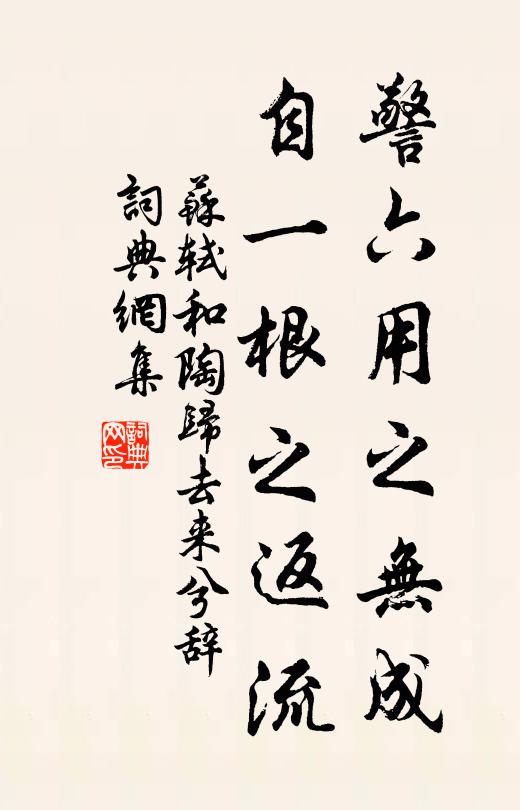 警六用之無成
自一根之返流
蘇軾和陶歸去来兮辞
詞典網集
詞典网印